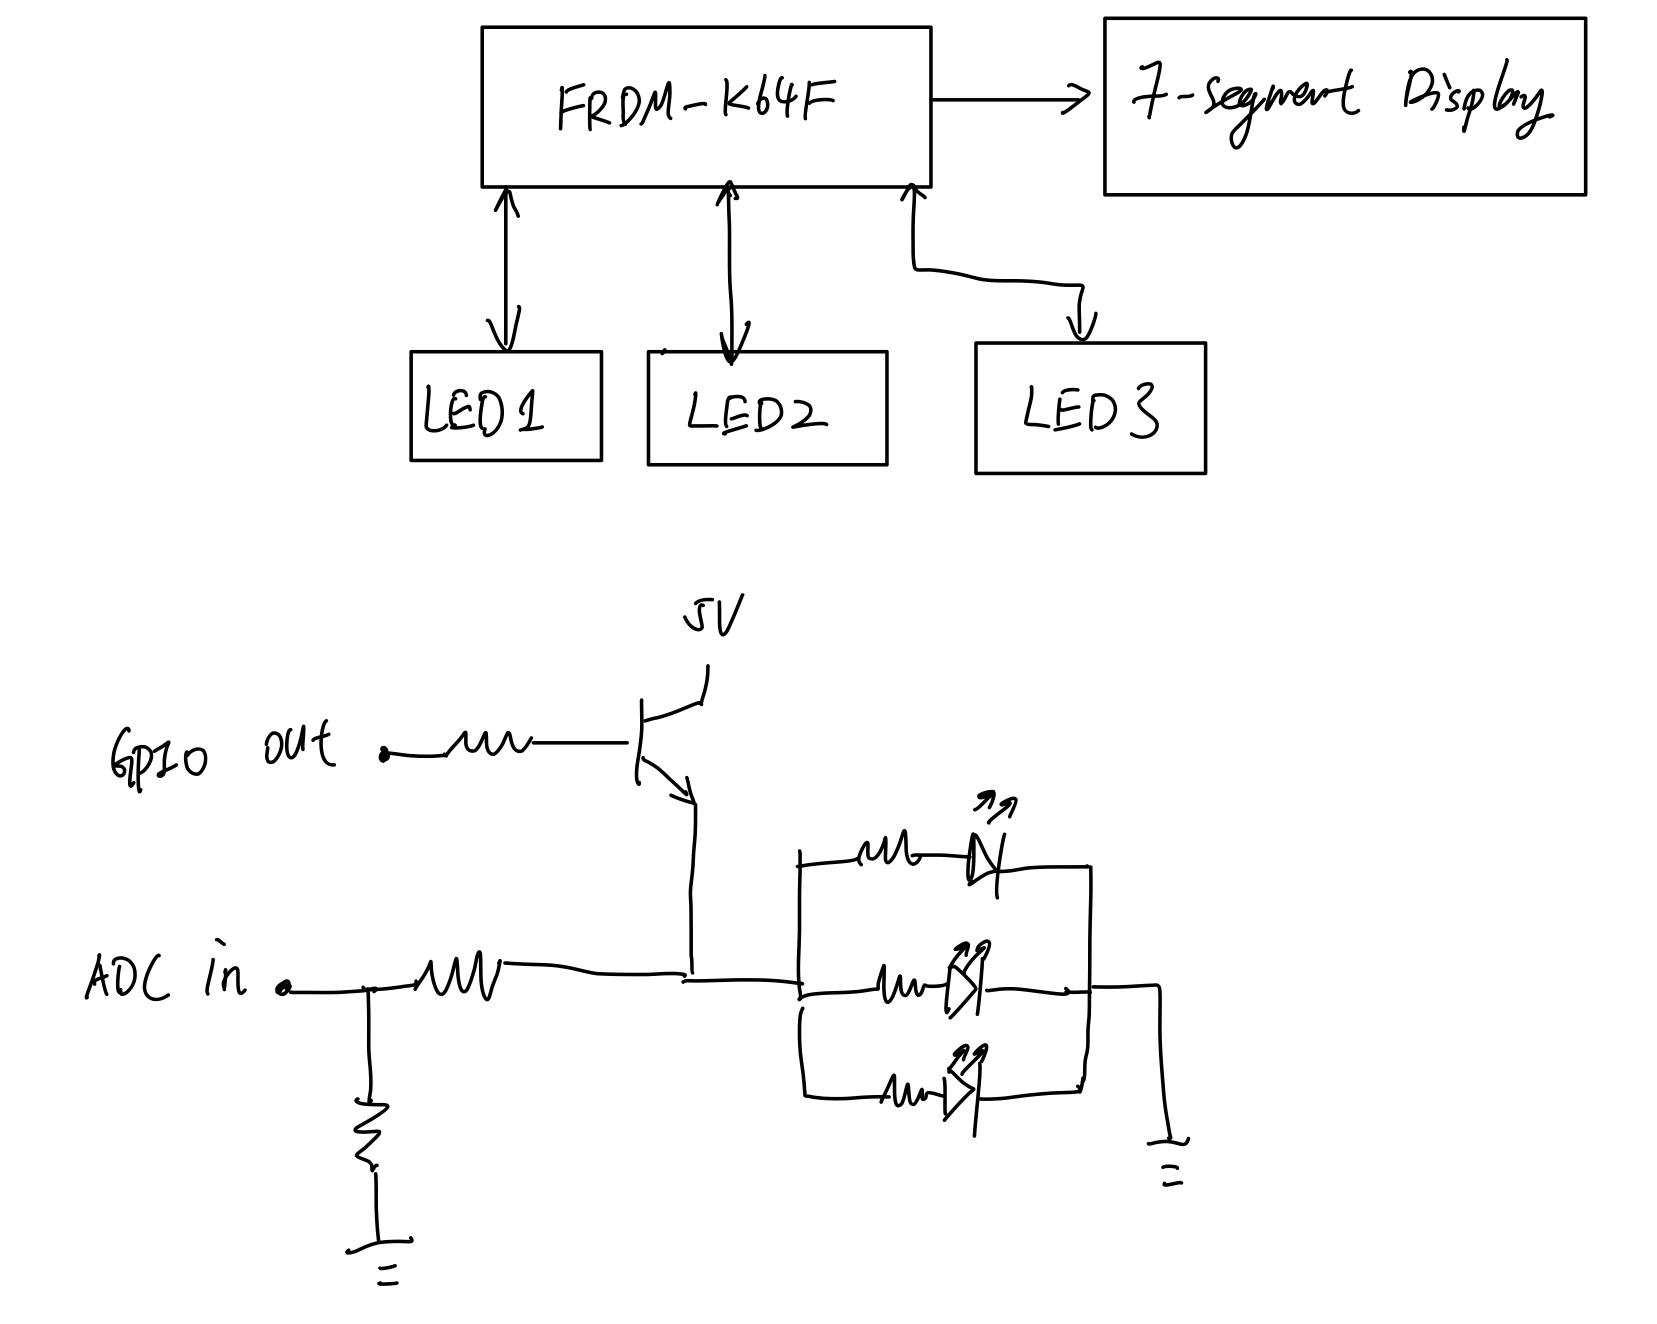 FRDM-K64F
7-segment Display
LED1
LED2
LED3
5V
GPIO out
ADC in